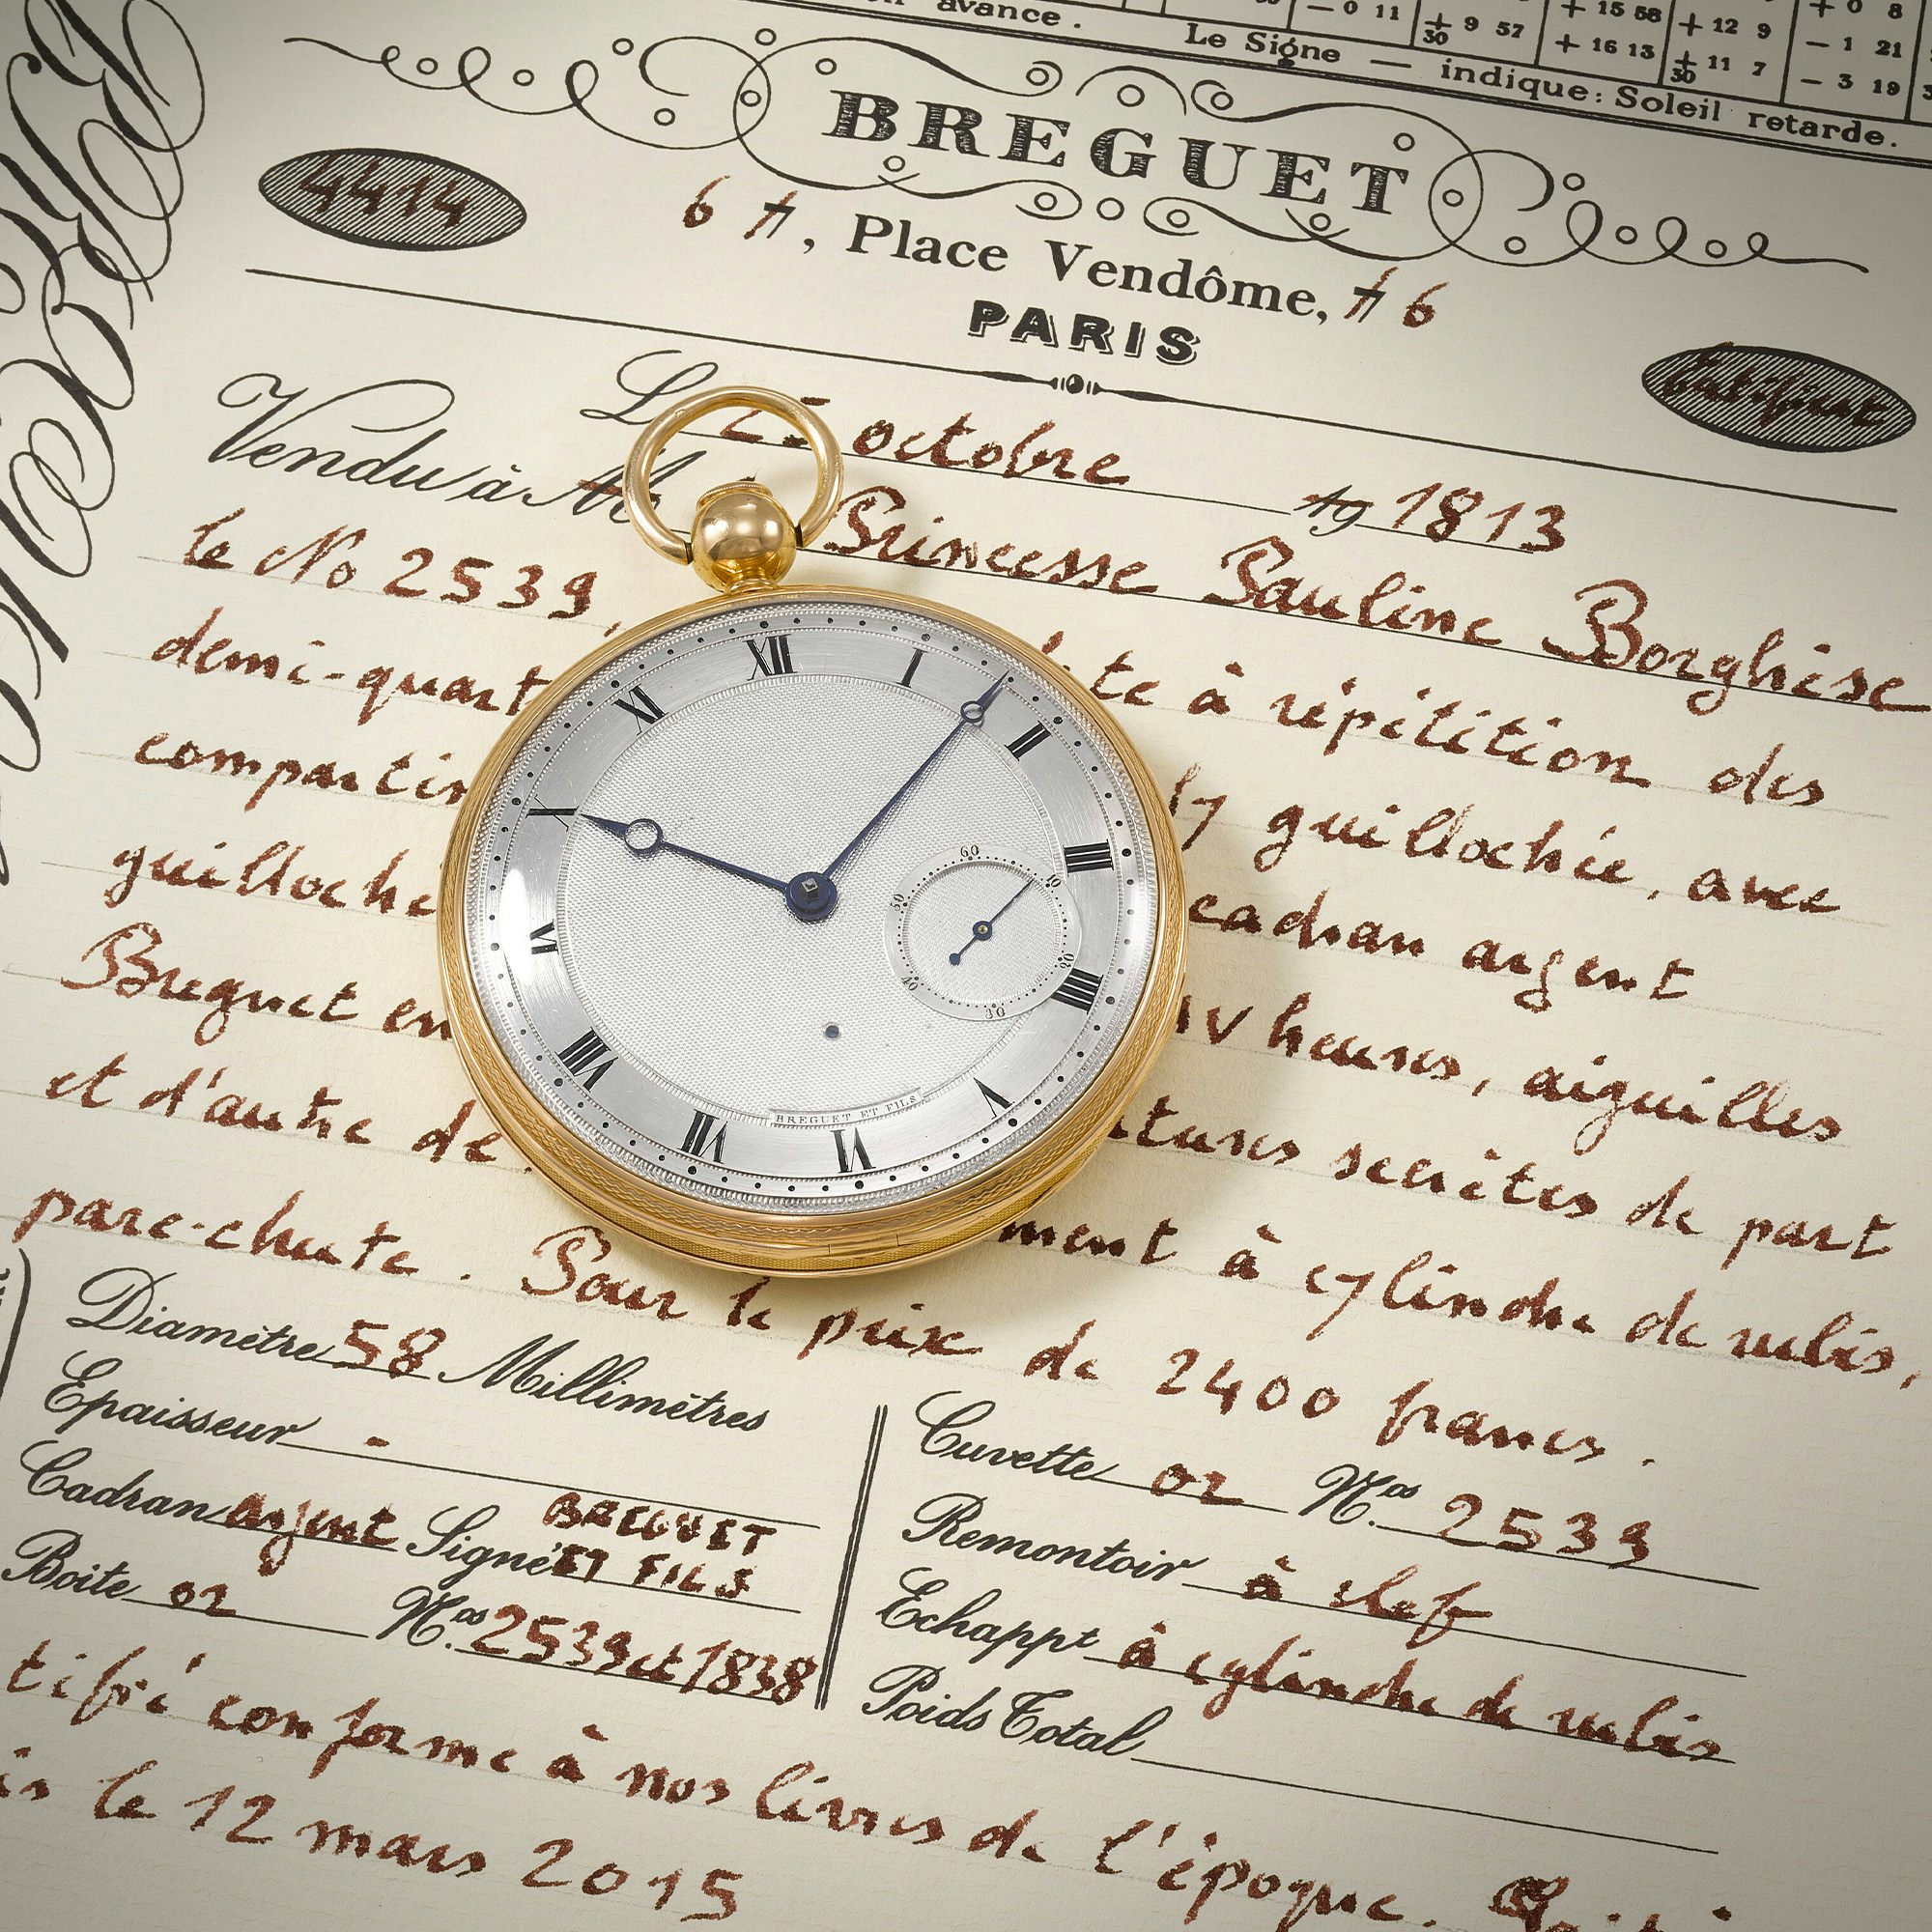 avance.
Le Signe — indique: Soleil retarde.
— 0 11
+ 9 57
30
+ 15 58
+ 16 13
+ 12 9
+ 11 7
30
+ 0 8
— 1 21
— 3 19
BREGUET
4414
6 7, Place Vendôme, 7 6
PARIS
Certificat
octobre 19 1813
Vendu à M Princesse Pauline Borghèse
le No 2539, à répétition des
demi-quart guillochée, avec
compartim cadran argent
guilloché IV heures, aiguilles
Breguet en secrètes de part
et d'autre de ment à cylindre de rubis,
pare-chute. Pour le prix de 2400 francs.
Diamètre 58 Millimètres
Epaisseur -
Cadran argent Signé BREGUET ET FILS
Boite or Nos 2539 et 1838
Cuvette or Nos 2539
Remontoir à clef
Echappt à cylindre de rubis
Poids Total
tifié conforme à nos livres de l'époque.
le 12 mars 2015
XII
I
II
III
IIII
V
VI
VII
VIII
IX
X
XI
60
10
20
30
40
50
BREGUET ET FILS